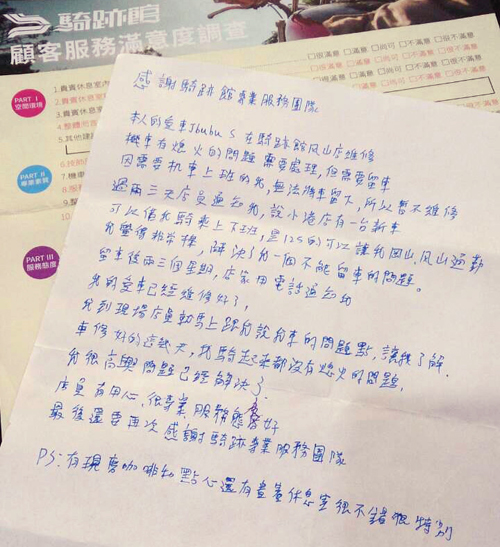 騎跡館
顧客服務滿意度調查
□很滿意 □滿意 □尚可 □不滿意 □很不滿意
PART I
空間環境
1.貴賓休息室內
2.貴賓休息
3.貴賓休息
4.整體
5.其他建
PART II
專業素養
6.技術
7.機車
8.服務
PART III
服務態度
感謝騎跡館專業服務團隊
本人的愛車Jbubu S 在騎跡館鳳山店維修
機車有熄火的問題需要處理,但需要留車
因需要机車上班的我,無法將車留下,所以暫不維修
過兩三天店員通知我,說小港店有一台新車
可以借我騎乘上下班,是125的可以讓我岡山.鳳山通勤
我覺得非常棒,解決了我一個不能留車的問題。
留車後兩三個星期,店家用電話通知
我的愛車已經維修好了,
我到現場店員馬上跟我說我車的問題點,讓我了解.
車修好的這幾天,我騎起來都沒有熄火的問題,
我很高興問題已經解決了.
店員有用心,很專業,服務態度好
最後還要再次感謝騎跡專業服務團隊
PS:有現磨咖啡和點心還有畫畫休息室很不錯很特別